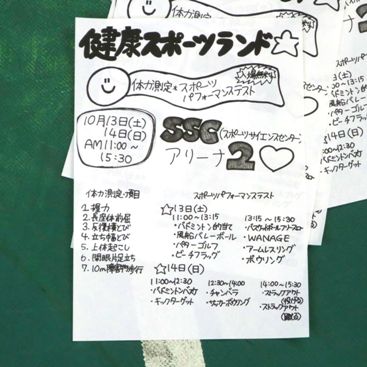 健康スポーツランド☆
入場無料
体力測定＊スポーツ
パフォーマンステスト
10月13日(土)
14日(日)
AM11:00～
15:30
SSC(スポーツサイエンスセンター)
アリーナ2♡
体力測定項目
1.握力
2.長座体前屈
3.反復横とび
4.立ち幅とび
5.上体起こし
6.閉眼片足立ち
7.10m障害物歩行
スポーツパフォーマンステスト
☆13日(土)
11:00～13:15
・バドミントン的当て
・風船バレーボール
・パターゴルフ
・ビーチフラッグ
13:15～15:30
・バスケットボールフリースロー
・WANAGE
・アームレスリング
・ボウリング
☆14日(日)
11:00～12:30
・バドミントン的当て
・キックターゲット
12:30～14:00
・チャンバラ
・サッカーボウリング
14:00～15:30
・ストラックアウト
(投げる)
・ストラックアウト
(蹴る)